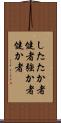 したたか者
健者強か者
健か者